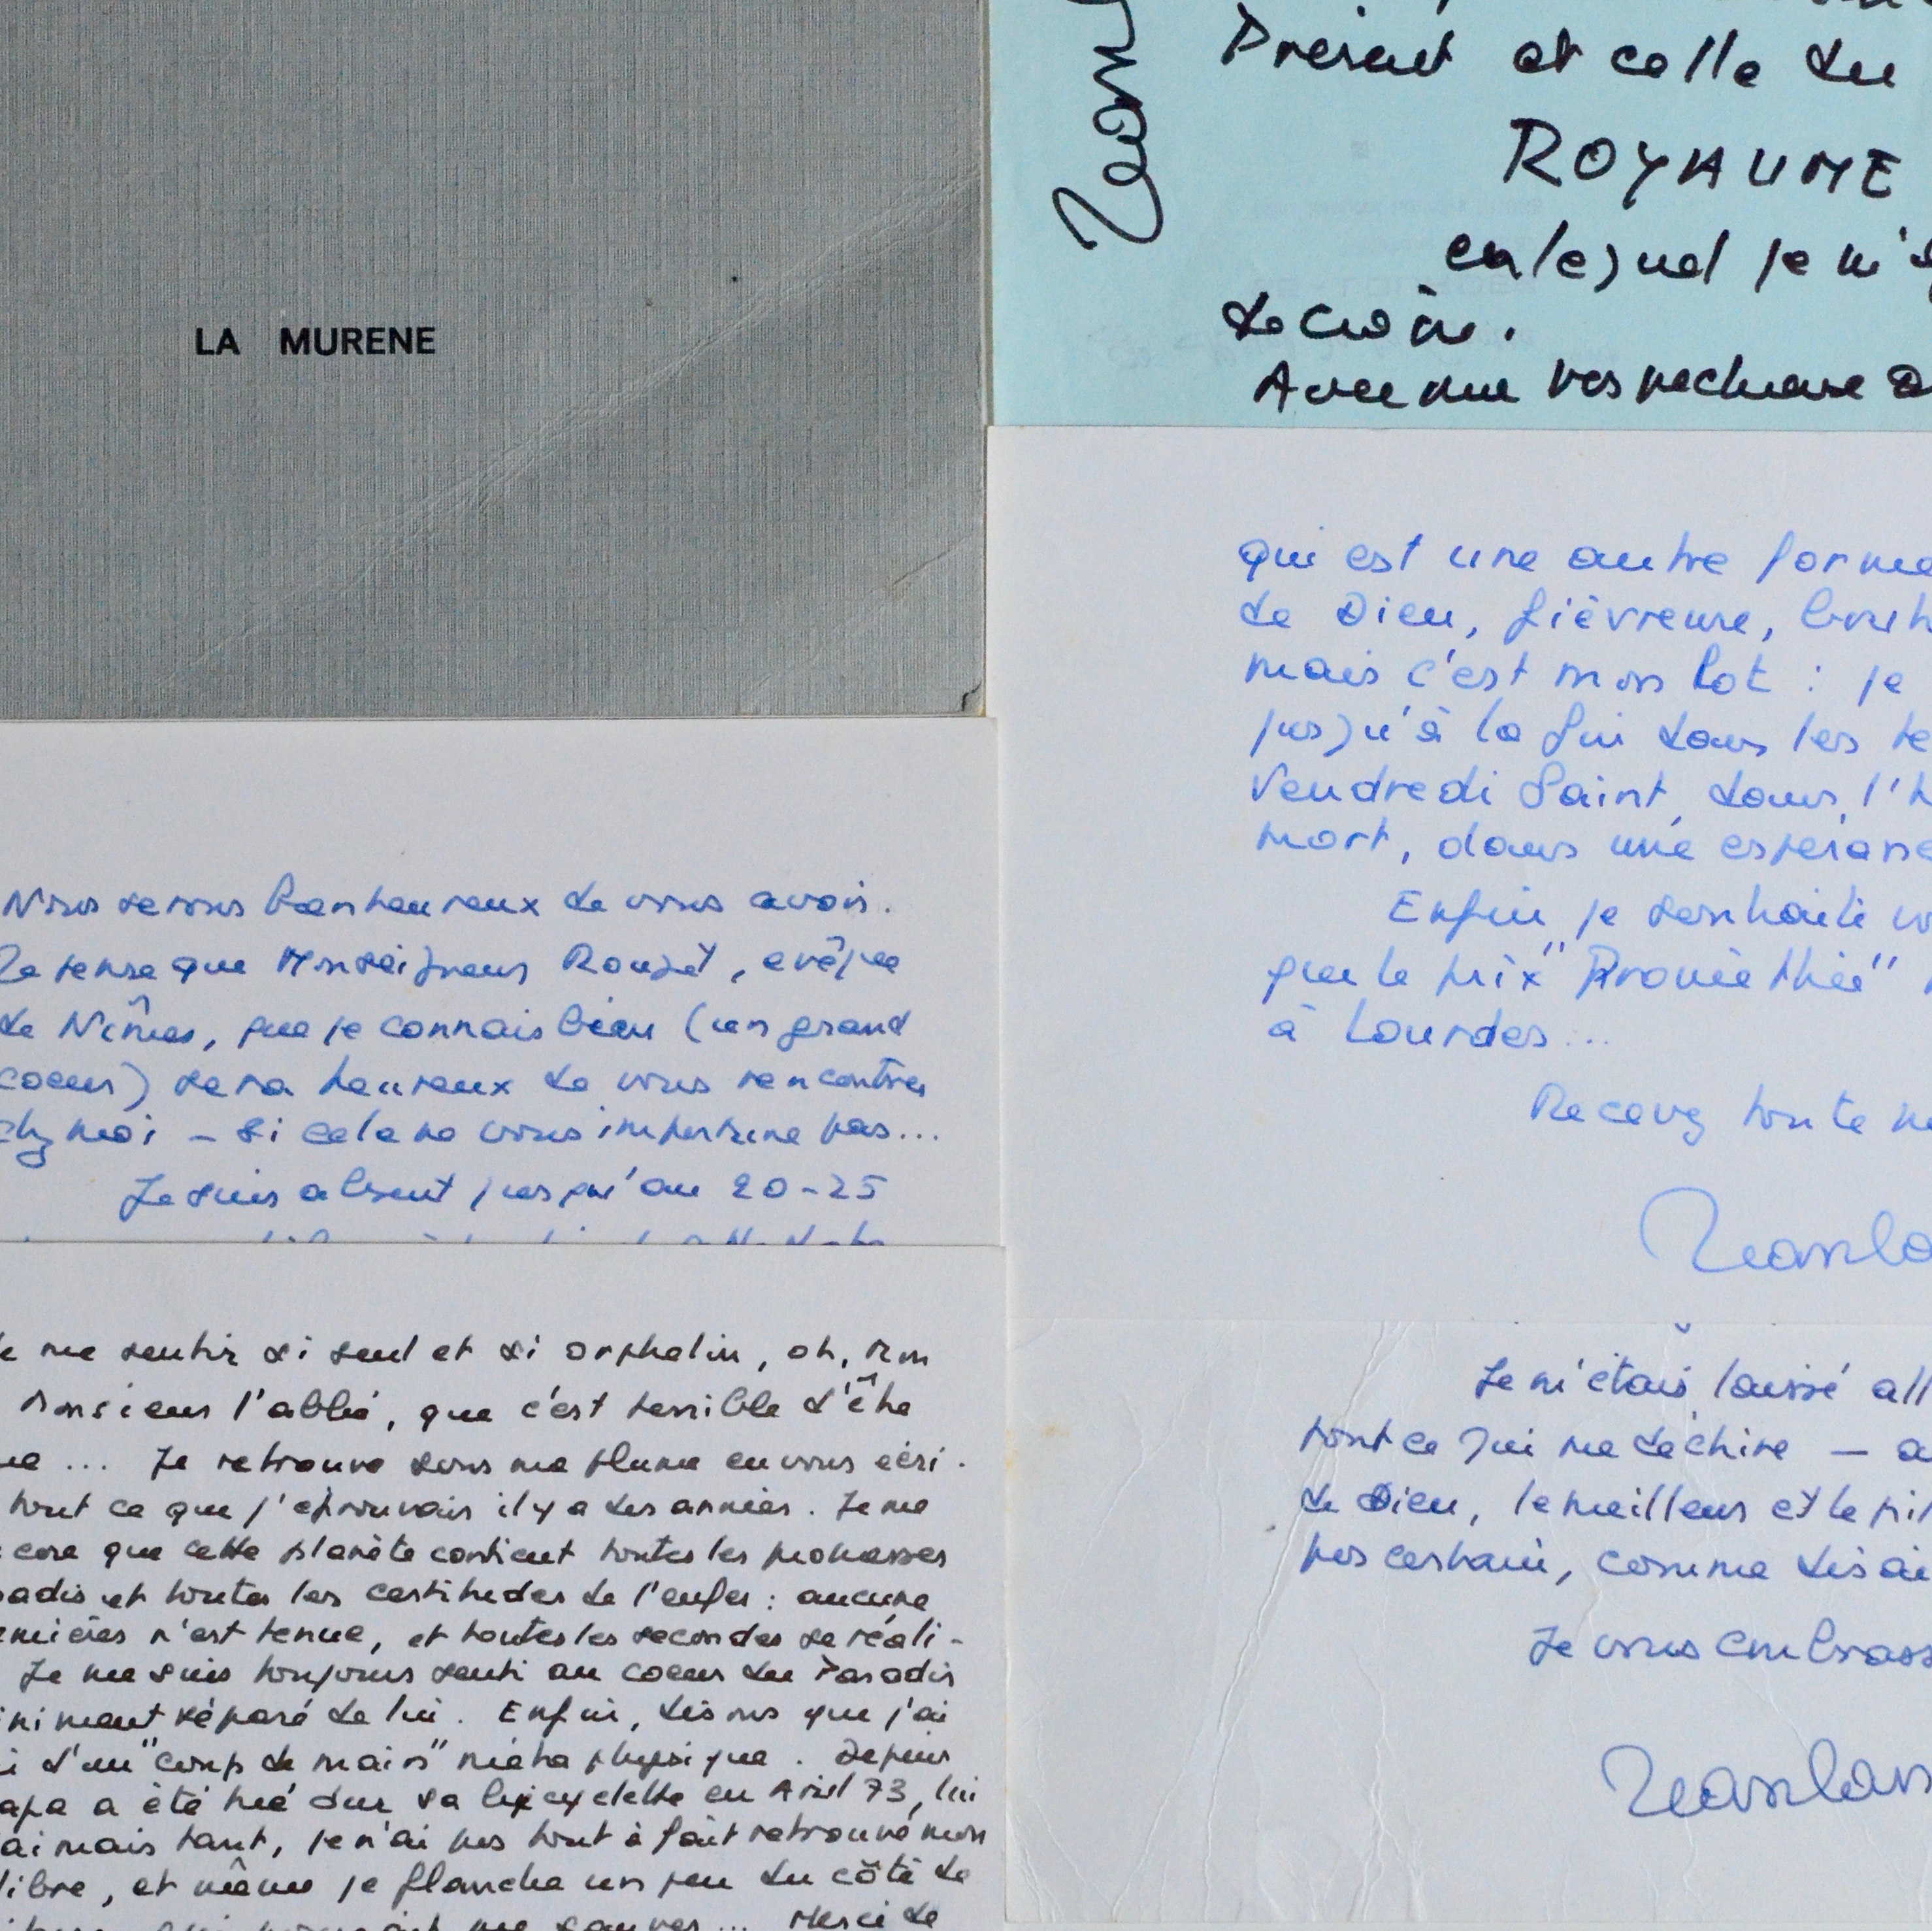 LA MURENE
Nous serons bienheureux de vous avoir.
Je pense que Monseigneur Rougé, évêque
de Nîmes, que je connais bien (un grand
coeur) sera heureux de vous rencontrer
chez moi – si cela ne vous importune pas...
Je suis absent jusqu'au 20-25
me sentir si seul et si orphelin, oh, mon
Monsieur l'abbé, que c'est terrible d'être
... Je retrouve sous ma plume en vous écri-
tout ce que j'éprouvais il y a des années. Je me
core que cette planète contient toutes les promesses
adis et toutes les certitudes de l'enfer : aucune
emières n'est tenue, et toutes les secondes se réali-
Je me suis toujours senti au coeur du Paradis
niment séparé de lui. Enfin, disons que j'ai
i d'un "coup de main" métaphysique. Depuis
apa a été tué sur sa bicyclette en Avril 73, lui
aimais tant, je n'ai pas tout à fait retrouvé mon
libre, et même je flanche un peu du côté de
me sauver... Merci de
Présent et celle du
ROYAUME
en lequel je m'
de croire.
Avec ma respectueuse
qui est une autre forme
de Dieu, fiévreuse,
mais c'est mon lot : je
jusqu'à la fin dans les
Vendredi Saint, dans l'h
mort, dans une espérance
Enfin je souhaite
que le prix "Prométhée"
à Lourdes...
Recevez toute
Jeanla
Je m'étais laissé all
tout ce qui me déchire – a
de Dieu, le meilleur et le pi
pas certain, comme disai
Je vous embrass
Jeanlan